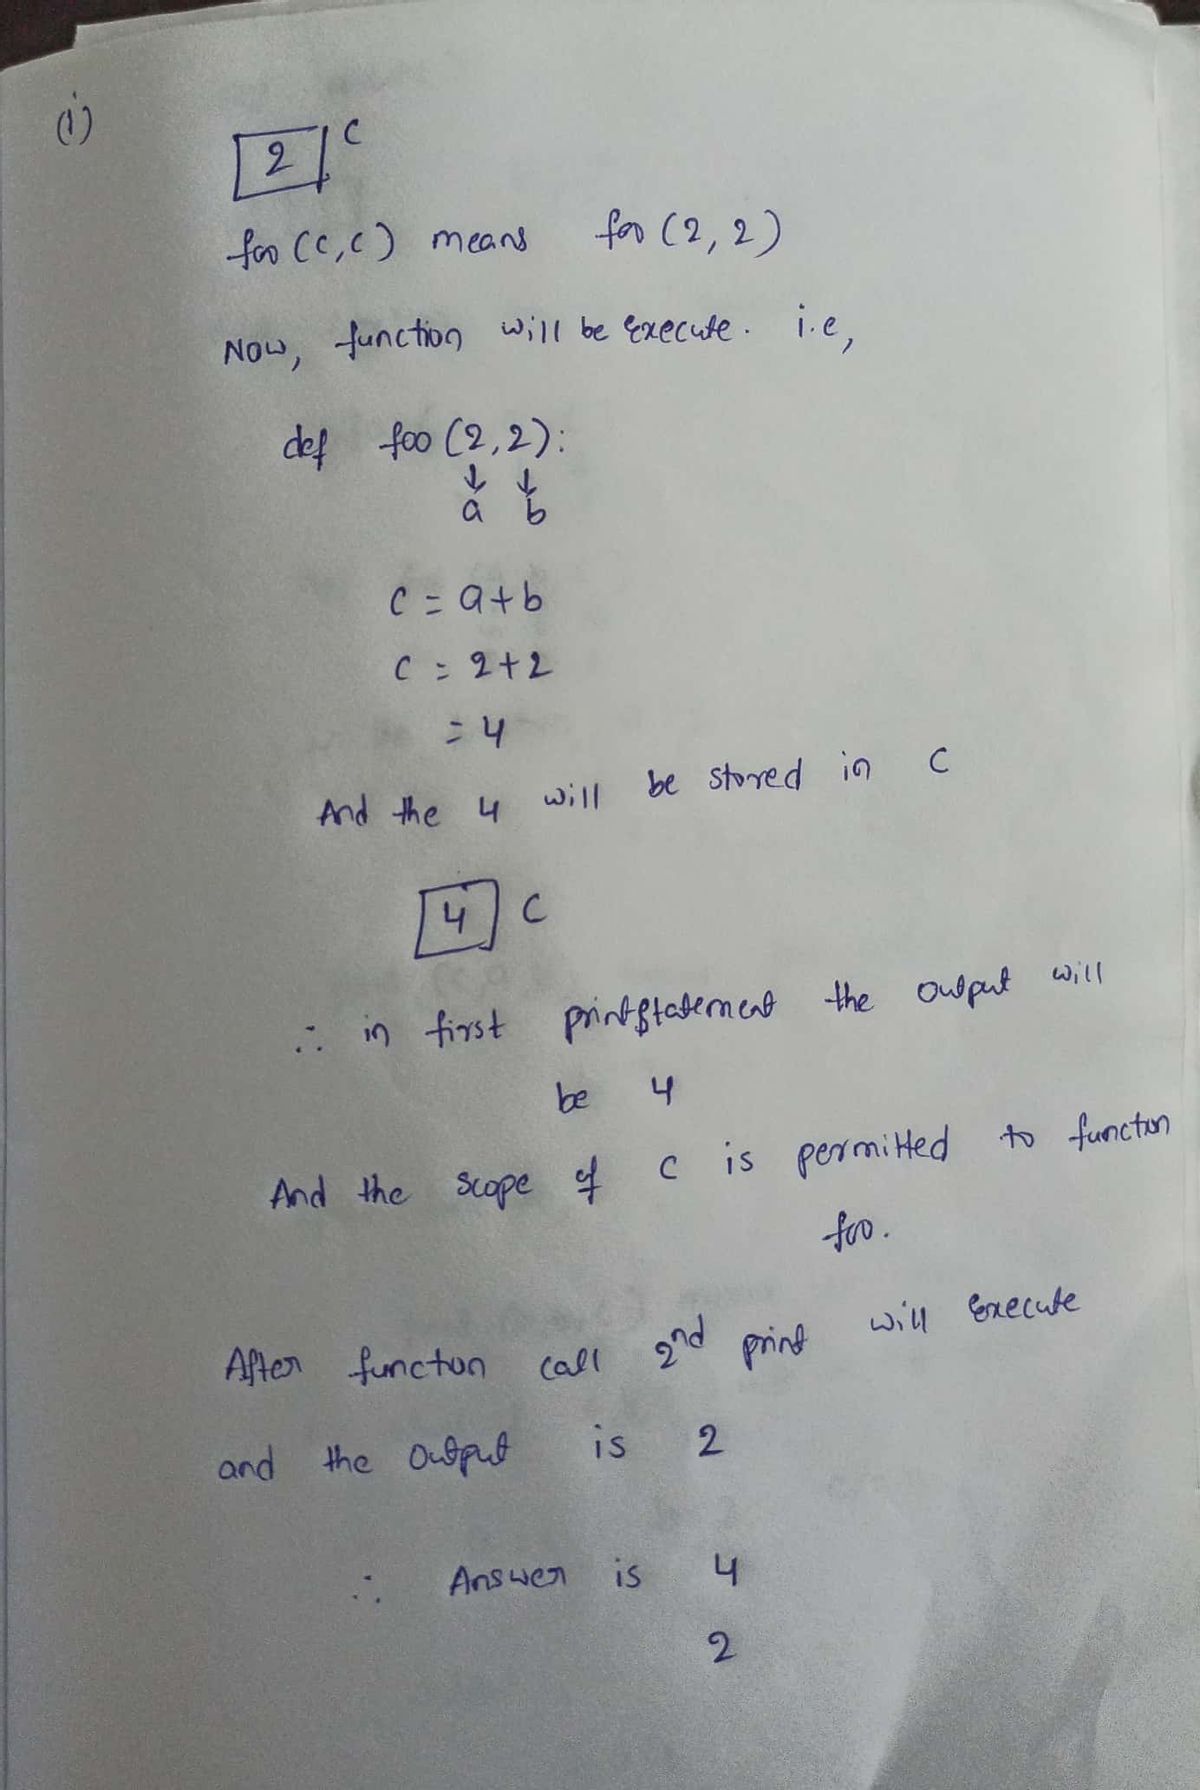 (i)
2 C
foo (c,c) means foo (2,2)
Now, function will be Execute. i.e,
def foo (2,2):
↓ ↓
a b
C = a+b
C = 2+2
= 4
And the 4 will be stored in C
4 C
∴ in first printstatement the output will
be 4
And the scope of C is permitted to function
foo.
After function call 2nd print will Execute
and the output is 2
∴ Answer is 4
2